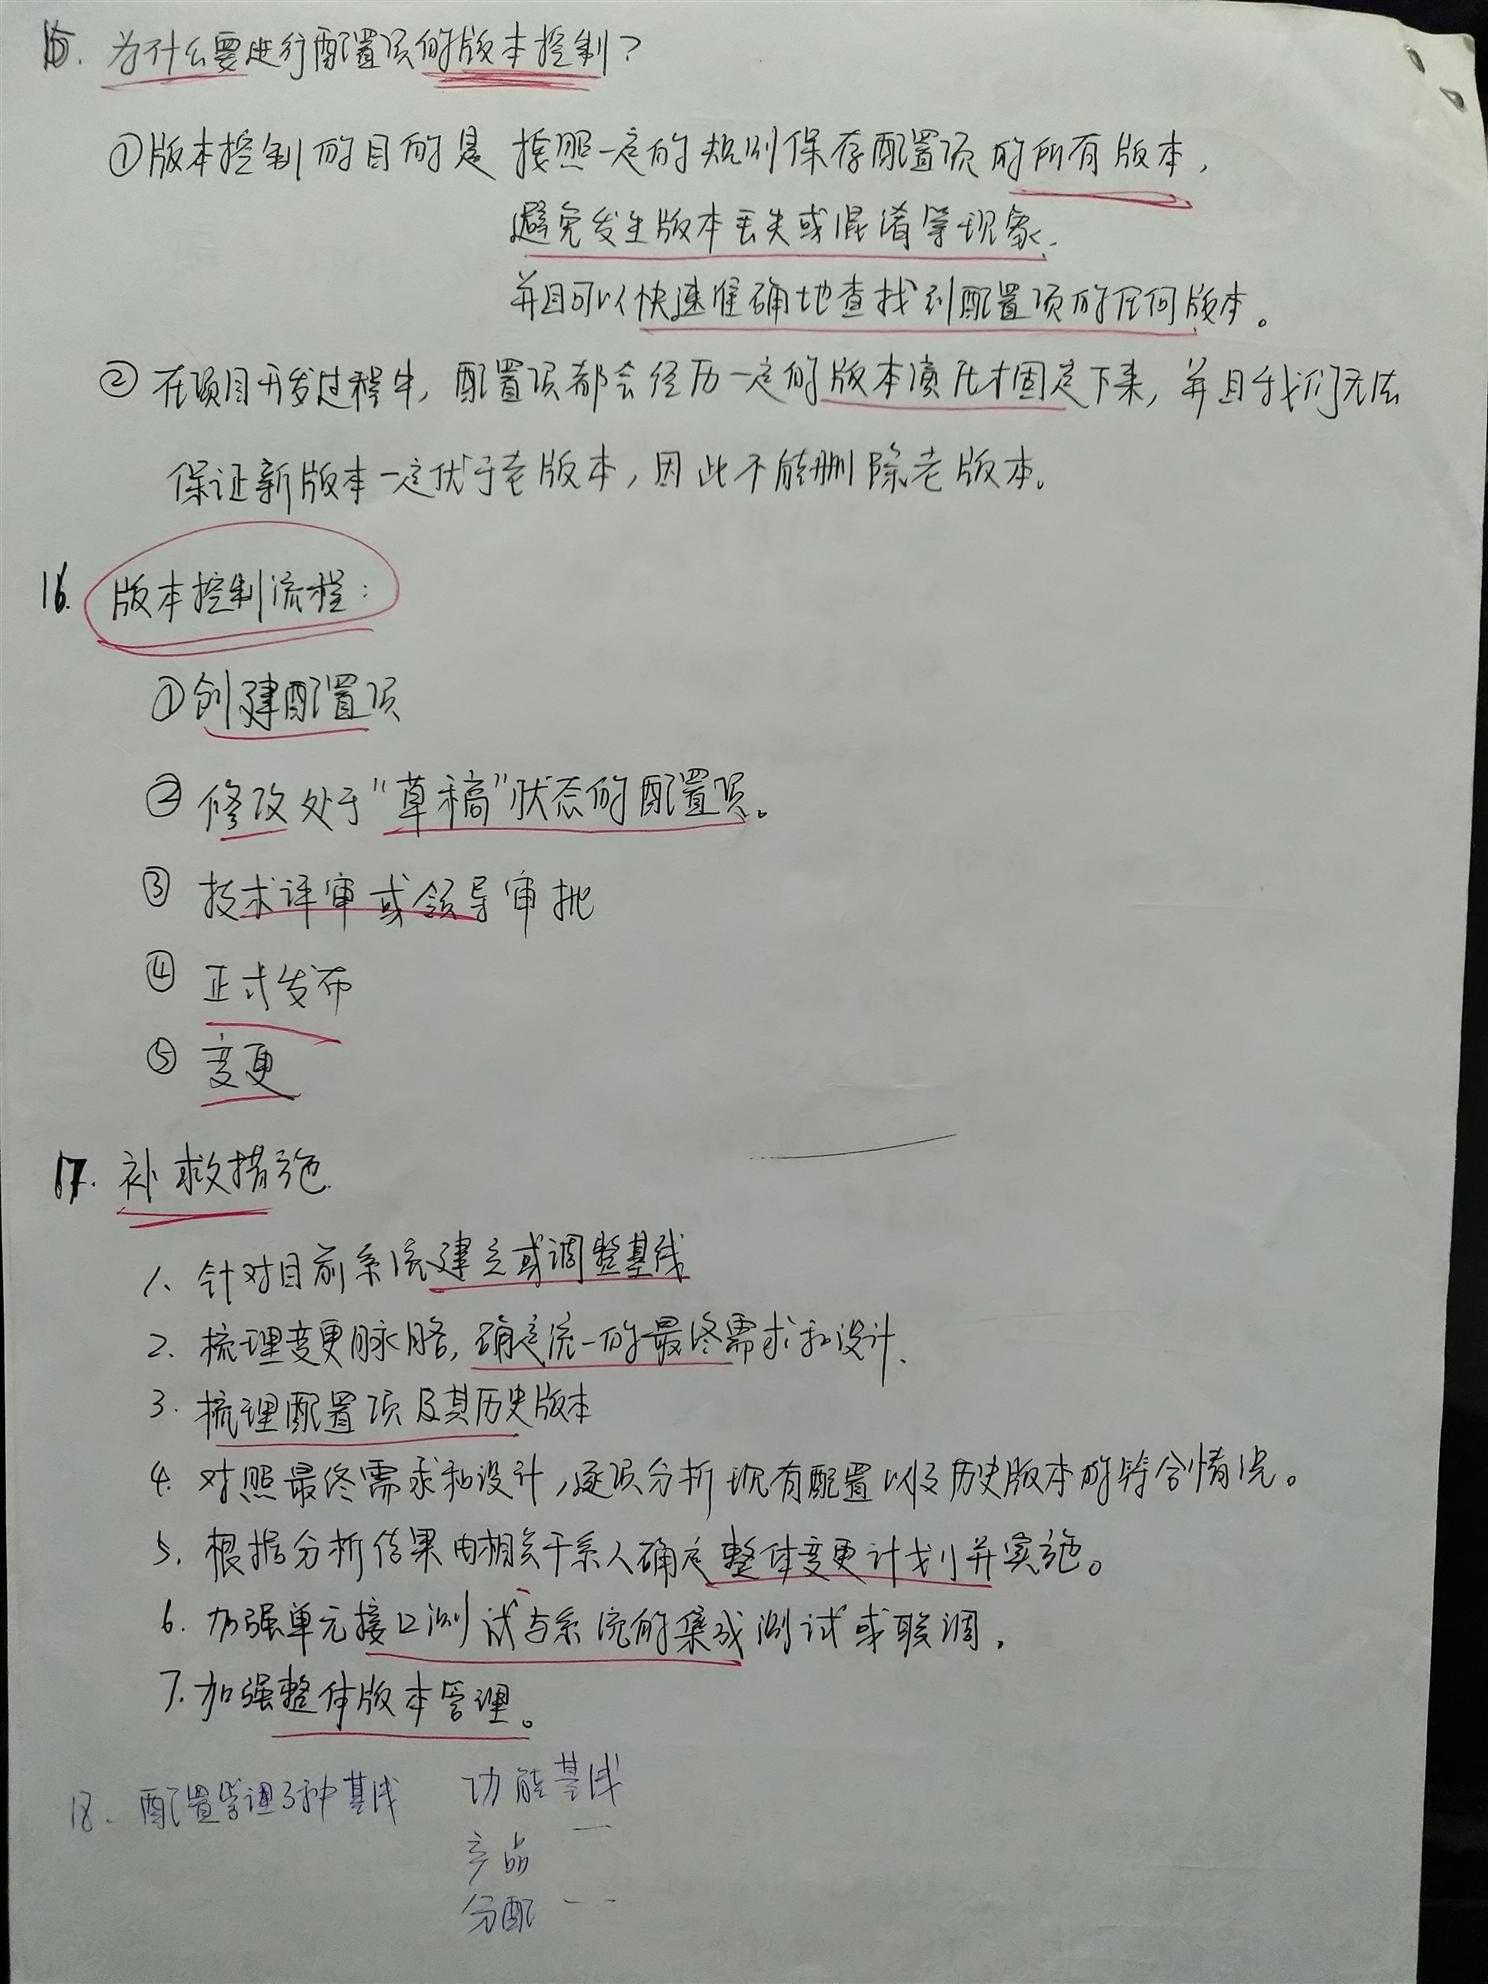 15. 为什么要进行配置项的版本控制？
①版本控制的目的是 按照一定的规则保存配置项的所有版本，
避免发生版本丢失或混淆等现象.
并且可以快速准确地查找到配置项的任何版本。
② 在项目开发过程中, 配置项都会经历一定的版本演化才固定下来, 并且我们无法
保证新版本一定优于老版本, 因此不能删除老版本。
16. 版本控制流程：
①创建配置项
② 修改处于“草稿”状态的配置项。
③ 技术评审或领导审批
④ 正式发布
⑤ 变更
17. 补救措施
1、针对目前系统建立或调整基线
2. 梳理变更脉络, 确定统一的最终需求和设计.
3. 梳理配置项及其历史版本
4. 对照最终需求和设计, 逐项分析现有配置以及历史版本的符合情况。
5. 根据分析结果由相关干系人确定整体变更计划并实施。
6. 加强单元接口测试与系统的集成测试或联调.
7. 加强整体版本管理。
18. 配置管理3种基线 功能基线
产品 —
分配 ——